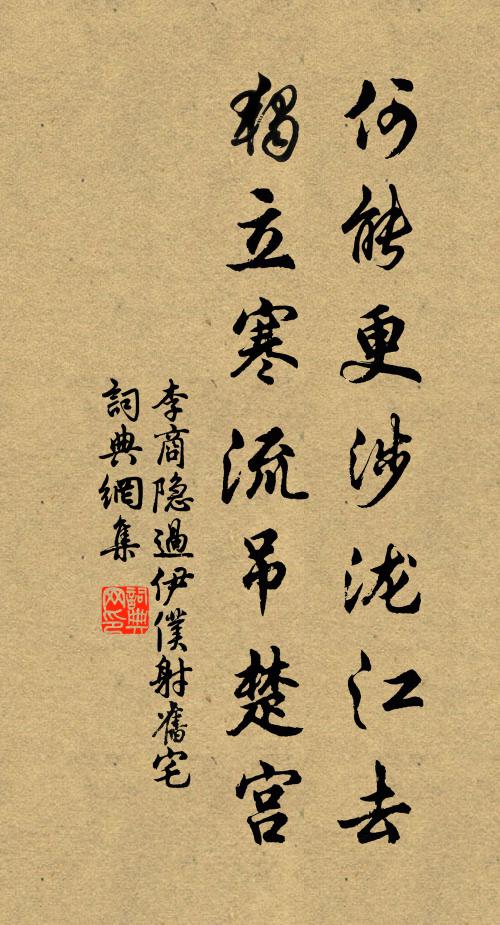 何能更涉泷江去
独立寒流吊楚宫
李商隐過伊僕射舊宅
詞典網集
詞典网印